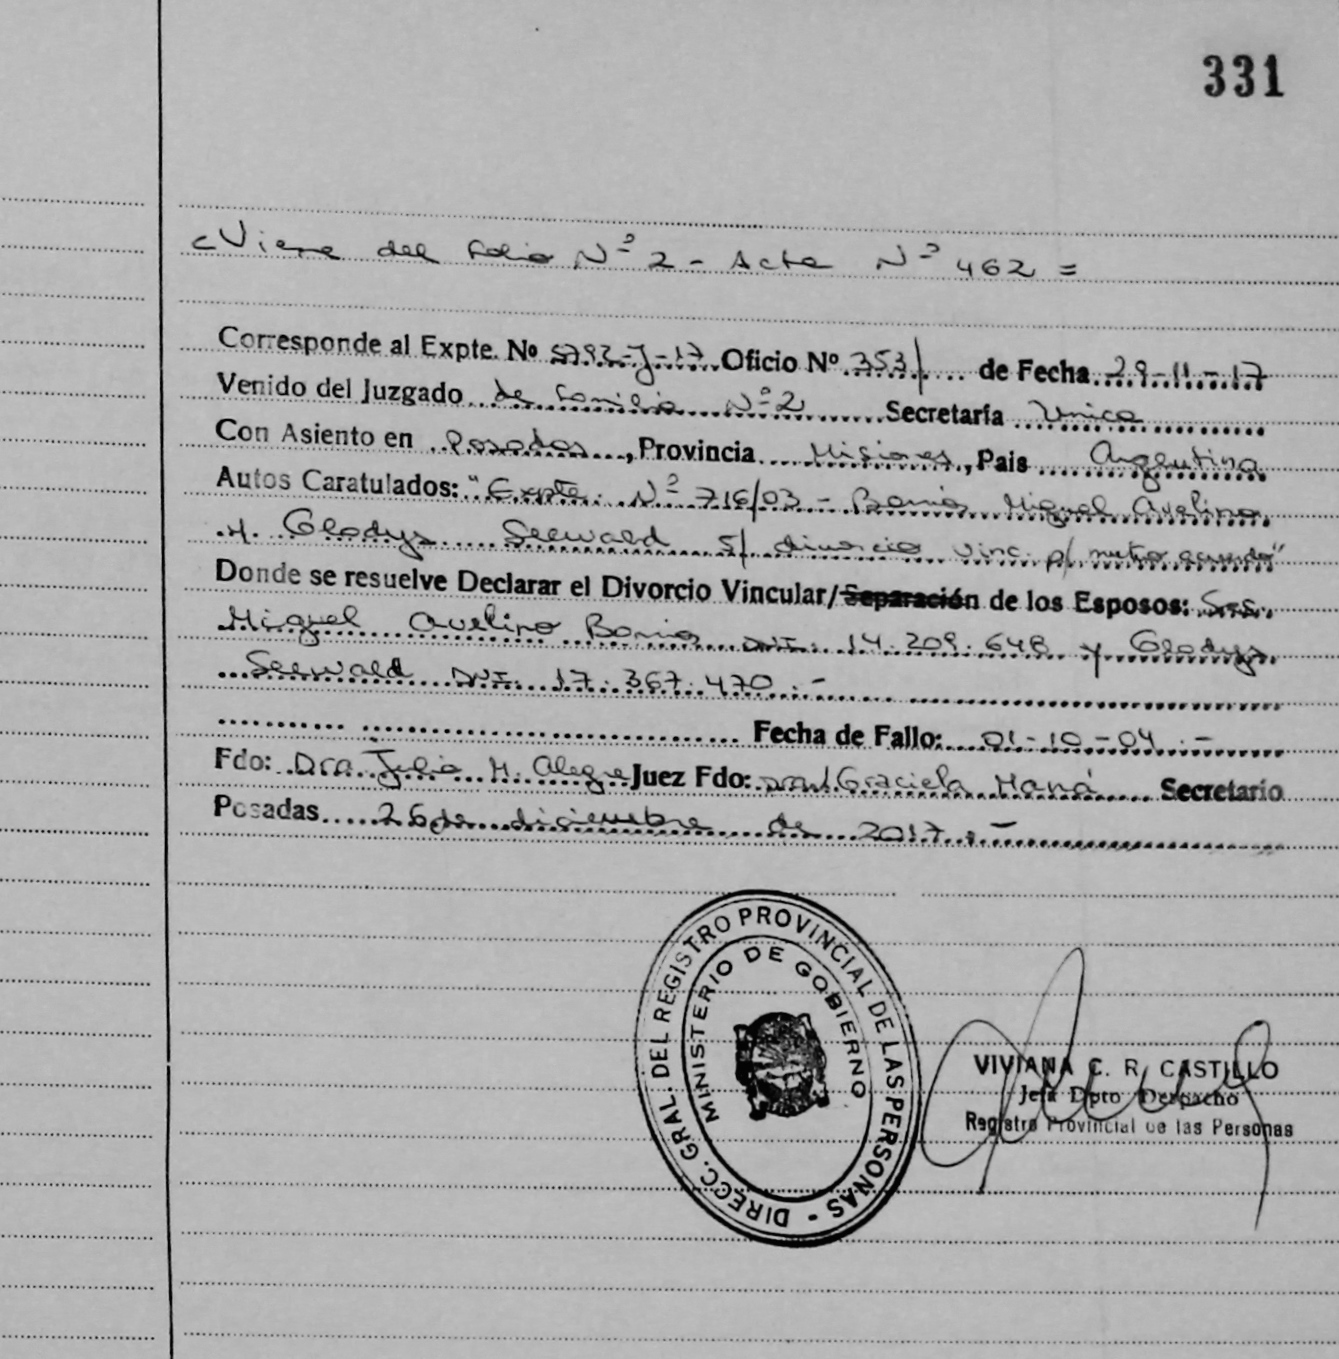 331
Viene del Folio Nº 2 - Acta Nº 462 =
Corresponde al Expte. Nº 5792-J-17 Oficio Nº 353/ de Fecha 29-11-17
Venido del Juzgado de Familia Nº 2 Secretaría Unica
Con Asiento en Posadas, Provincia Misiones, Pais Argentina
Autos Caratulados: "Expte. Nº 716/03 - Miguel Avelino
y Gladys Seewald s/ divorcio vinc. p/ mutuo acuerdo"
Donde se resuelve Declarar el Divorcio Vincular/Separación de los Esposos: Srs.
Miguel Avelino DNI. 14.209.648 y Gladys
Seewald DNI. 17.367.470.-
Fecha de Fallo: 01-10-04.-
Fdo: Dra. Julia H. Alegre Juez Fdo: Graciela Maná Secretario
Posadas 26 de diciembre de 2017.-
DIRECC. GRAL. DEL REGISTRO PROVINCIAL DE LAS PERSONAS -
MINISTERIO DE GOBIERNO
VIVIANA C. R. CASTILLO
Jefa Dpto Despacho
Registro Provincial de las Personas